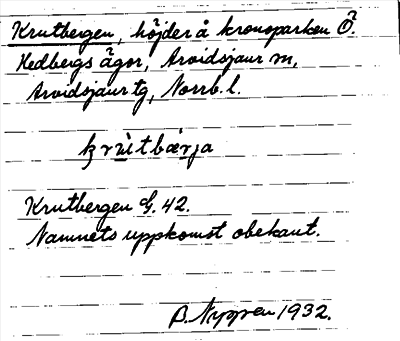 Krutbergen, höjder å kronoparken Ö.
Hedbergs ägor, Arvidsjaur sn,
Arvidsjaur tg, Norrb. l.
krùtbærja
Krutbergen G. 42.
Namnets uppkomst obekant.
B. Nygren 1932.